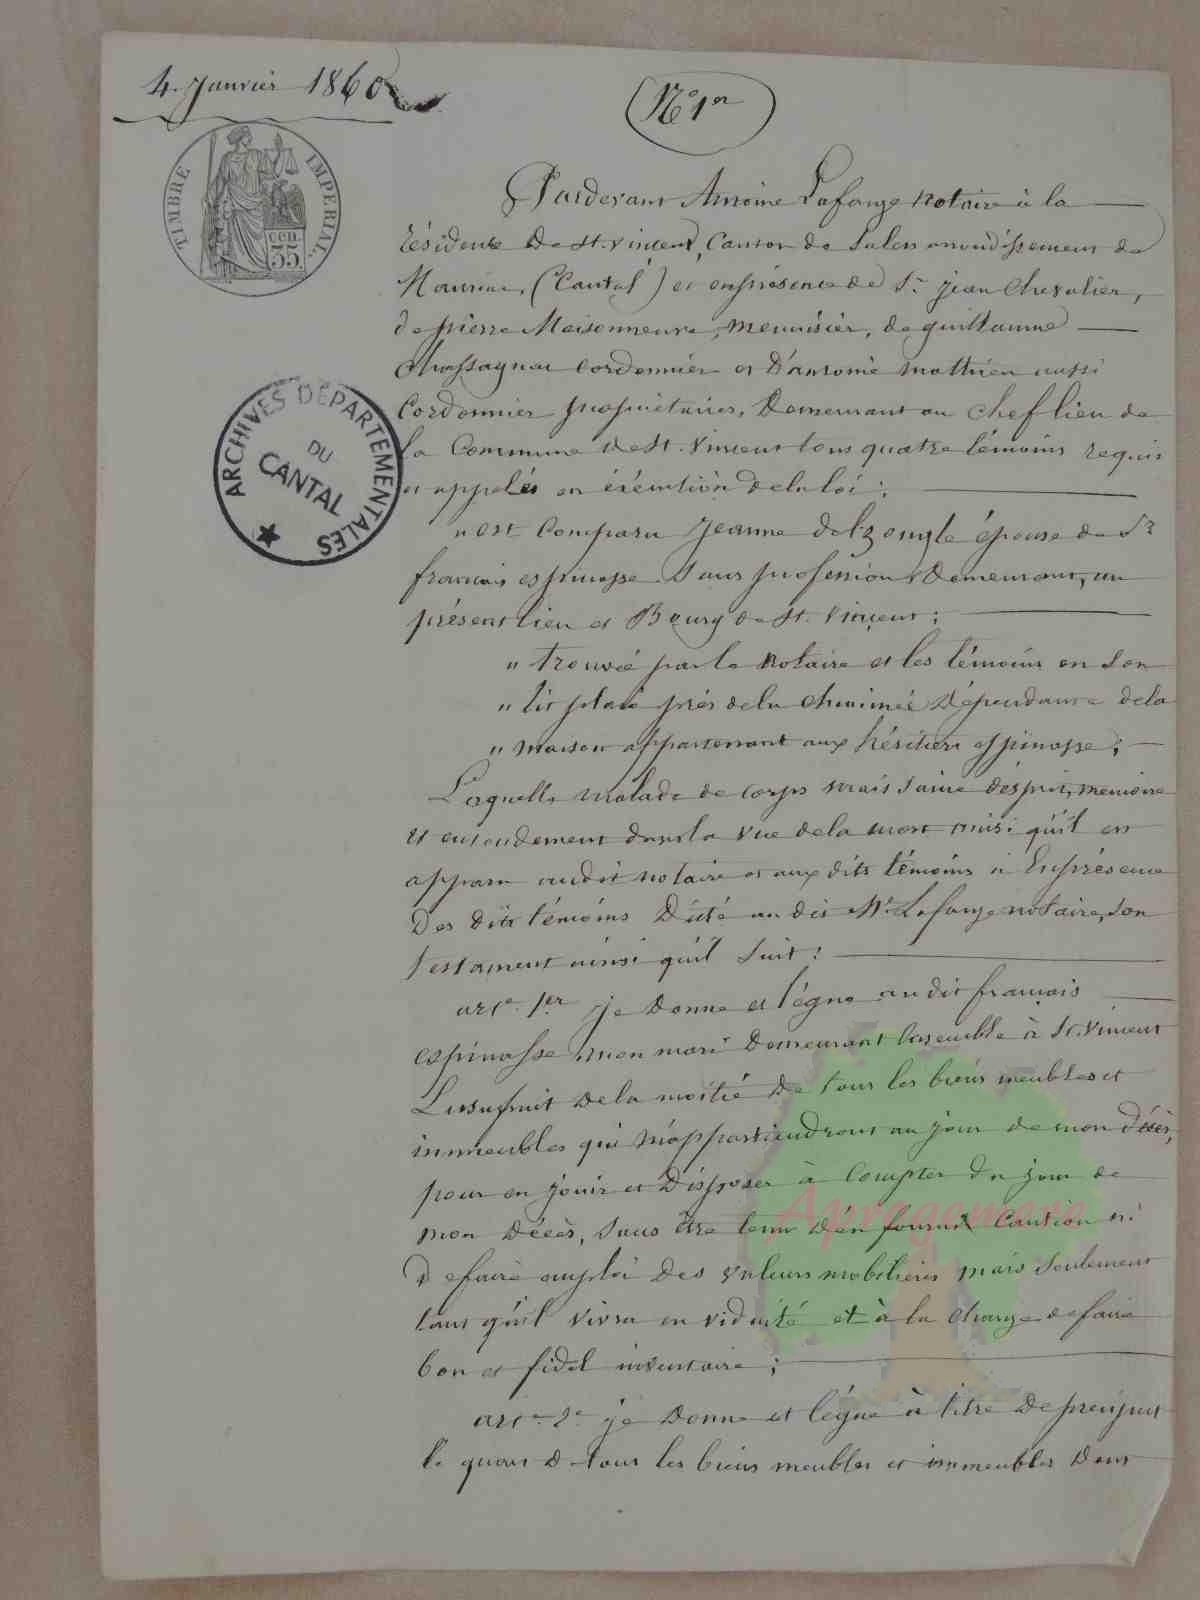 4 Janvier 1860
N° 1er
TIMBRE IMPERIAL
35 cen.
ARCHIVES DEPARTEMENTALES
DU
CANTAL
Pardevant Antoine Lafarge notaire à la
résidence de St. Vincent, Canton de Salers arrondissement de
Mauriac, (Cantal) et en présence de Sr. jean Chevalier,
de pierre Maisonneuve, menuisier, de guillaume
Chassagnac cordonnier et D'antoine mathieu aussi
Cordonnier propriétaires, Demeurant au chef lieu de
la Commune de St. Vincent tous quatre témoins requis
et appelés en exécution de la loi;
" est Comparu Jeanne delzongle épouse de Sr
francois espinasse Sans profession Demeurant, au
présent lieu et Bourg de St. Vincent;
" trouvée par le notaire et les témoins en Son
" lit placé près de la cheminée Dépendance de la
" maison appartenant aux héritiers espinasse;
Laquelle malade de corps mais Saine d'ésprit, memoire
et entendement dans la vue de la mort ainsi qu'il en
apparu audit notaire et aux dits témoins à En présence
Des dits témoins Dicté au dit Me. Lafarge notaire, Son
testament ainsi qu'il Suit:
arte. 1er je Donne et lègue au dit francois
espinasse mon mari Demeurant Ensemble à St. Vincent
L'usufruit de la moitié De tous les biens meubles et
immeubles qui m'appartiendront au jour de mon décès,
pour en jouir et Disposer à Compter du jour de
mon Décès, Sans être tenu D'en fournir Caution ni
De faire emploi Des valeurs mobilières mais Seulement
tant qu'il vivra en viduité et à la charge de faire
bon et fidel inventaire;
arte. 2e je Donne et lègue à titre De preciput
le quart De tous les biens meubles et immeubles Dont
Aprogemere